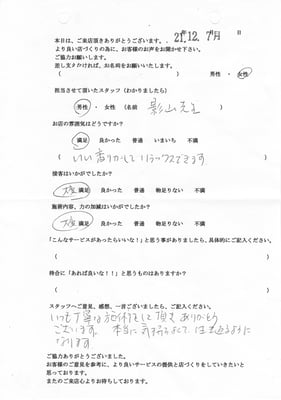 本日は、ご来店頂きありがとうございます。 21年12月7日
より良い店づくりの為に、お客様のお声をお聞かせ下さい。
ご協力お願いします。
差し支えなければ、お名前をお願いいたします。
( ) 男性 ・ 女性
担当させて頂いたスタッフ(わかりましたら)
男性 ・ 女性 (名前 影山先生 )
お店の雰囲気はどうですか?
満足 良かった 普通 いまいち 不満
( いい香りがして リラックスできます )
接客はいかがでしたか?
大変 満足 良かった 普通 物足りない 不満
施術内容、力の加減はいかがでしたか?
大変 満足 良かった 普通 物足りない 不満
「こんなサービスがあったらいいな!」と思う事がありましたら、具体的にご記入ください。
( )
待合に「あれば良いな!!」と思うものはありますか?
( )
スタッフへご意見、感想、一言ございましたら、ご記入ください。
いつも丁寧な施術をして頂き ありがとう
ございます。 本当に気持ちよくて、
なります
ご協力ありがとうございました。
お客様のご意見を参考に、より良いサービスの提供と店づくりをしていきたいと
思っております。
またのご来店心よりお待ちしております。